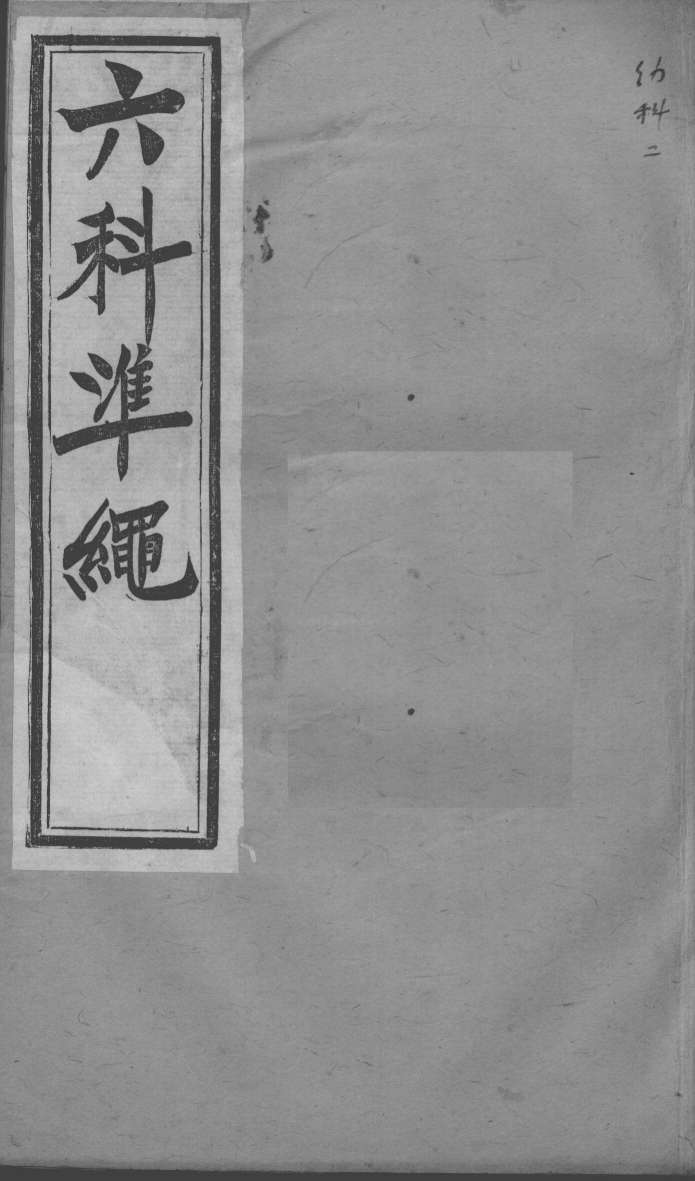 幼科二
六科準繩